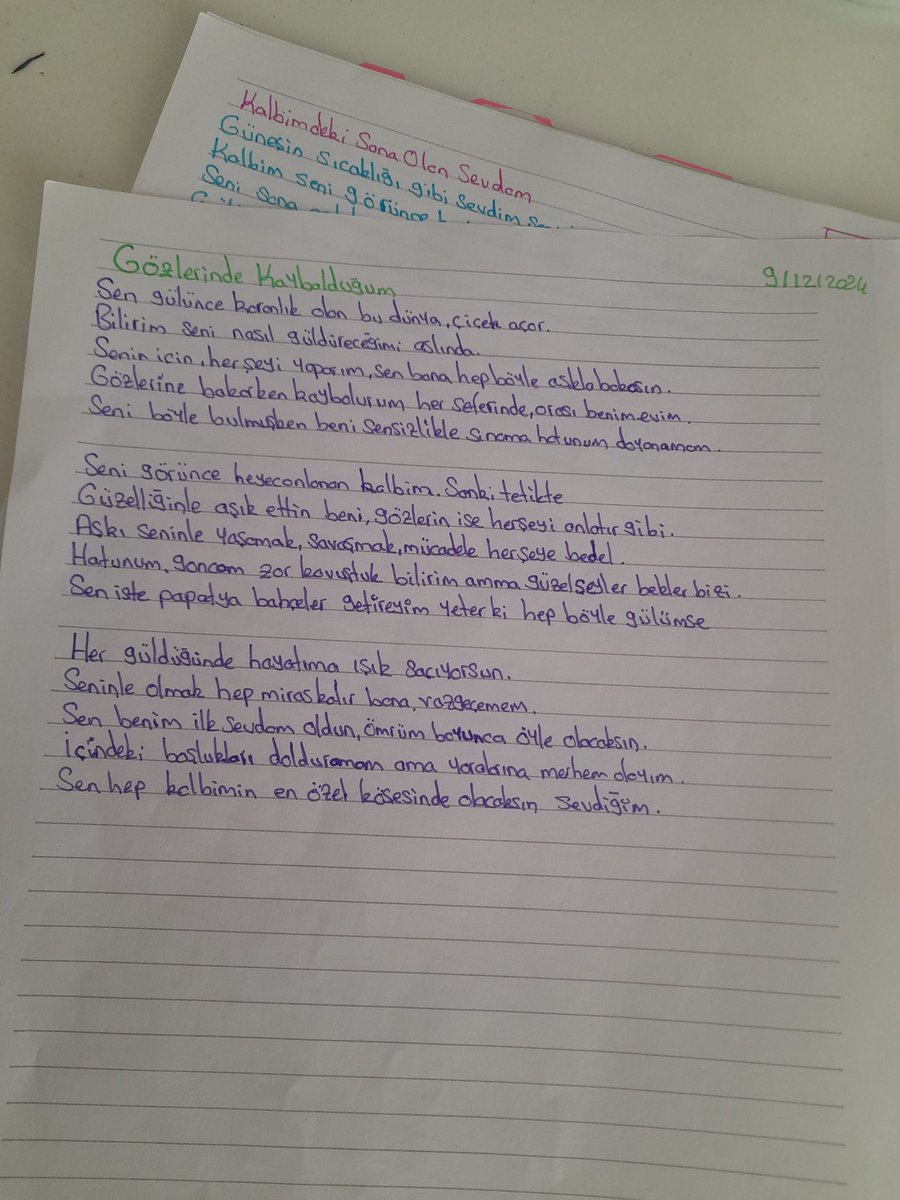 Kalbimdeki Sana Olan Sevdam
Güneşin sıcaklığı gibi sevdim
Kalbim seni görünce
Seni Sana
Gözlerinde Kaybolduğum
9/12/2024
Sen gülünce karanlık olan bu dünya, çiçek açar.
Bilirim seni nasıl güldüreceğimi aslında.
Senin için, herşeyi yaparım, sen bana hep böyle aşkla bakasın.
Gözlerine bakarken kaybolurum her seferinde, orası benim evim.
Seni böyle bulmuşken beni sensizlikle sınama hatunum dayanamam.
Seni görünce heyecanlanan kalbim. Sanki tetikte
Güzelliğinle aşık ettin beni, gözlerin ise herşeyi anlatır gibi.
Aşkı seninle yaşamak, savaşmak, mücadele herşeye bedel.
Hatunum, goncam zor kavuştuk bilirim amma güzel şeyler bekler bizi.
Sen iste papatya bahçeler getireyim yeter ki hep böyle gülümse
Her güldüğünde hayatıma ışık saçıyorsun.
Seninle olmak hep miras kalır bana, vazgeçemem.
Sen benim ilk sevdam oldun, ömrüm boyunca öyle olacaksın.
İçindeki boşlukları dolduramam ama yaralarına merhem olayım.
Sen hep kalbimin en özel köşesinde olacaksın sevdiğim.